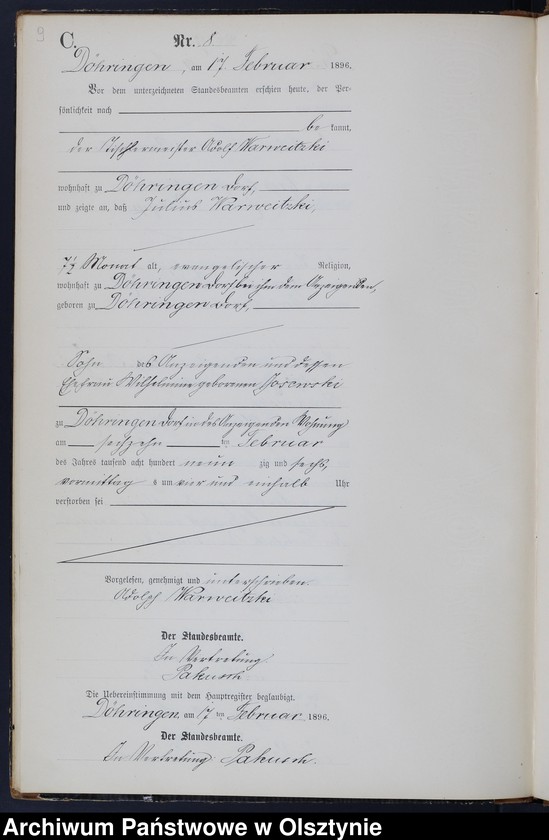 9
C.
Nr. 8.
Döhringen, am 17 Februar 1896.
Vor dem unterzeichneten Standesbeamten erschien heute, der Per-
sönlichkeit nach
be kannt,
der Tischlermeister Adolf Warweitzki
wohnhaft zu Döhringen Dorf,
und zeigte an, daß Julius Warweitzki,
7½ Monat alt, evangelischer Religion,
wohnhaft zu Döhringen Dorf bei ihm dem Anzeigenden,
geboren zu Döhringen Dorf,
Sohn des Anzeigenden und dessen
Ehefrau Wilhelmine geborenen
zu Döhringen Dorf in des Anzeigenden Wohnung
am sechzehn ten Februar
des Jahres tausend acht hundert neun zig und sechs,
vormittag s um vier und einhalb Uhr
verstorben sei
Vorgelesen, genehmigt und unterschrieben.
Adolph Warweitzki
Der Standesbeamte.
In Vertretung
Pakusch
Die Uebereinstimmung mit dem Hauptregister beglaubigt.
Döhringen, am 17 ten Februar 1896.
Der Standesbeamte.
In Vertretung: Pakusch.
Archiwum Państwowe w Olsztynie